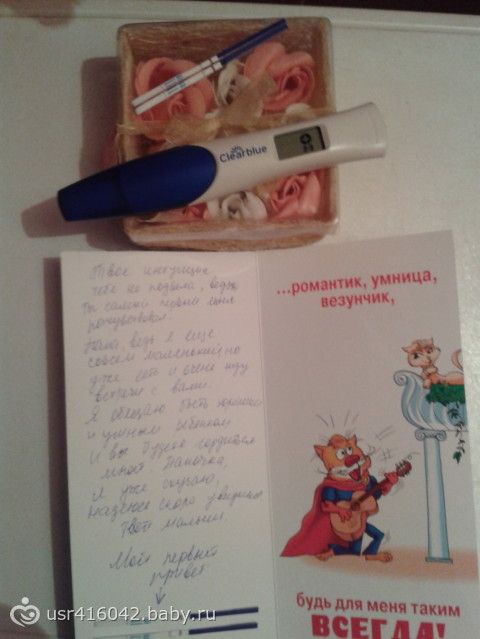 Clearblue
Твоя интуиция
тебя не подвела, ведь
ты самый первый меня
почувствовал.
Папа, ведь я еще
совсем маленький, но
уже есть и очень жду
встречи с вами.
Я обещаю быть хорошим
и умным ребенком
И вы будете гордиться
мной. Папочка,
я уже скучаю,
надеюсь скоро увидимся
Твой малыш.
Мой первый
привет
...романтик, умница,
везунчик,
будь для меня таким
ВСЕГДА!
usr416042.baby.ru